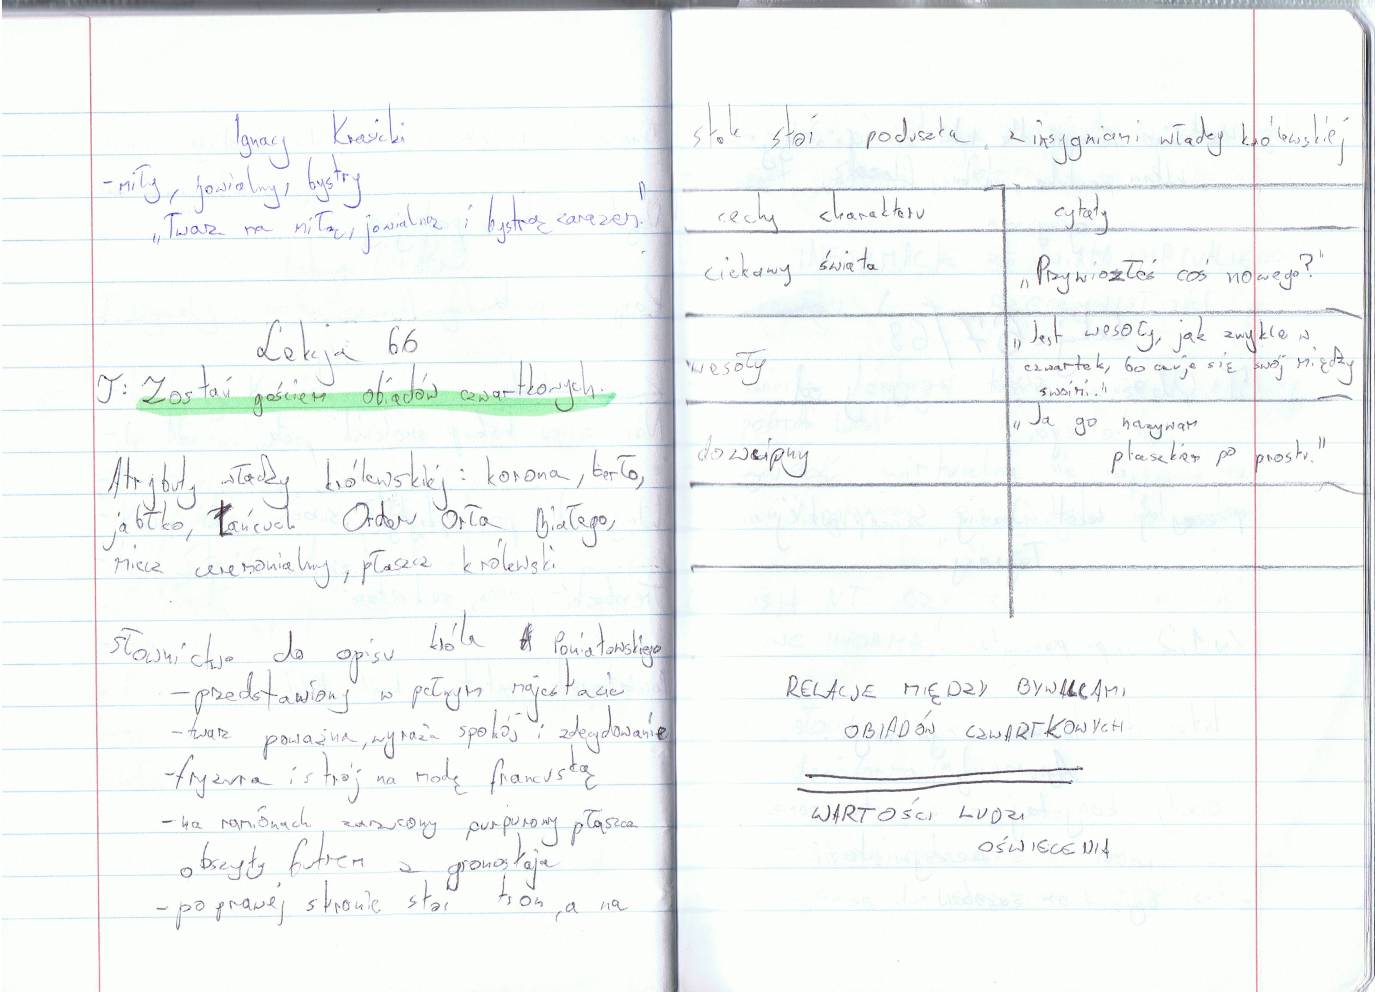 Ignacy Krasicki
- miły, jowialny, bystry
„Twarz ma miłą, jowialną i bystrą zarazem."
Lekcja 66
T: Zostań gościem obiadów czwartkowych.
Atrybuty władzy królewskiej: korona, berło,
jabłko, łańcuch Orderu Orła Białego,
miecz ceremonialny, płaszcz królewski
słownictwo do opisu króla Poniatowskiego
- przedstawiony w pełnym majestacie
- twarz poważna, wyraża spokój i zdecydowanie
- fryzura i strój na modę francuską
- na ramionach zarzucony purpurowy płaszcz
obszyty futrem z gronostaja
- po prawej stronie stoi tron, a na
stole stoi poduszka z insygniami władzy królewskiej
cechy charakteru cytaty
ciekawy świata „Przywiozłeś coś nowego?"
wesoły „Jest wesoły, jak zwykle w
czwartek, bo czuje się swój między
swoimi."
dowcipny „Ja go nazywam
ptaszkiem po prostu."
RELACJE MIĘDZY BYWALCAMI
OBIADÓW CZWARTKOWYCH
WARTOŚCI LUDZI
OŚWIECENIA